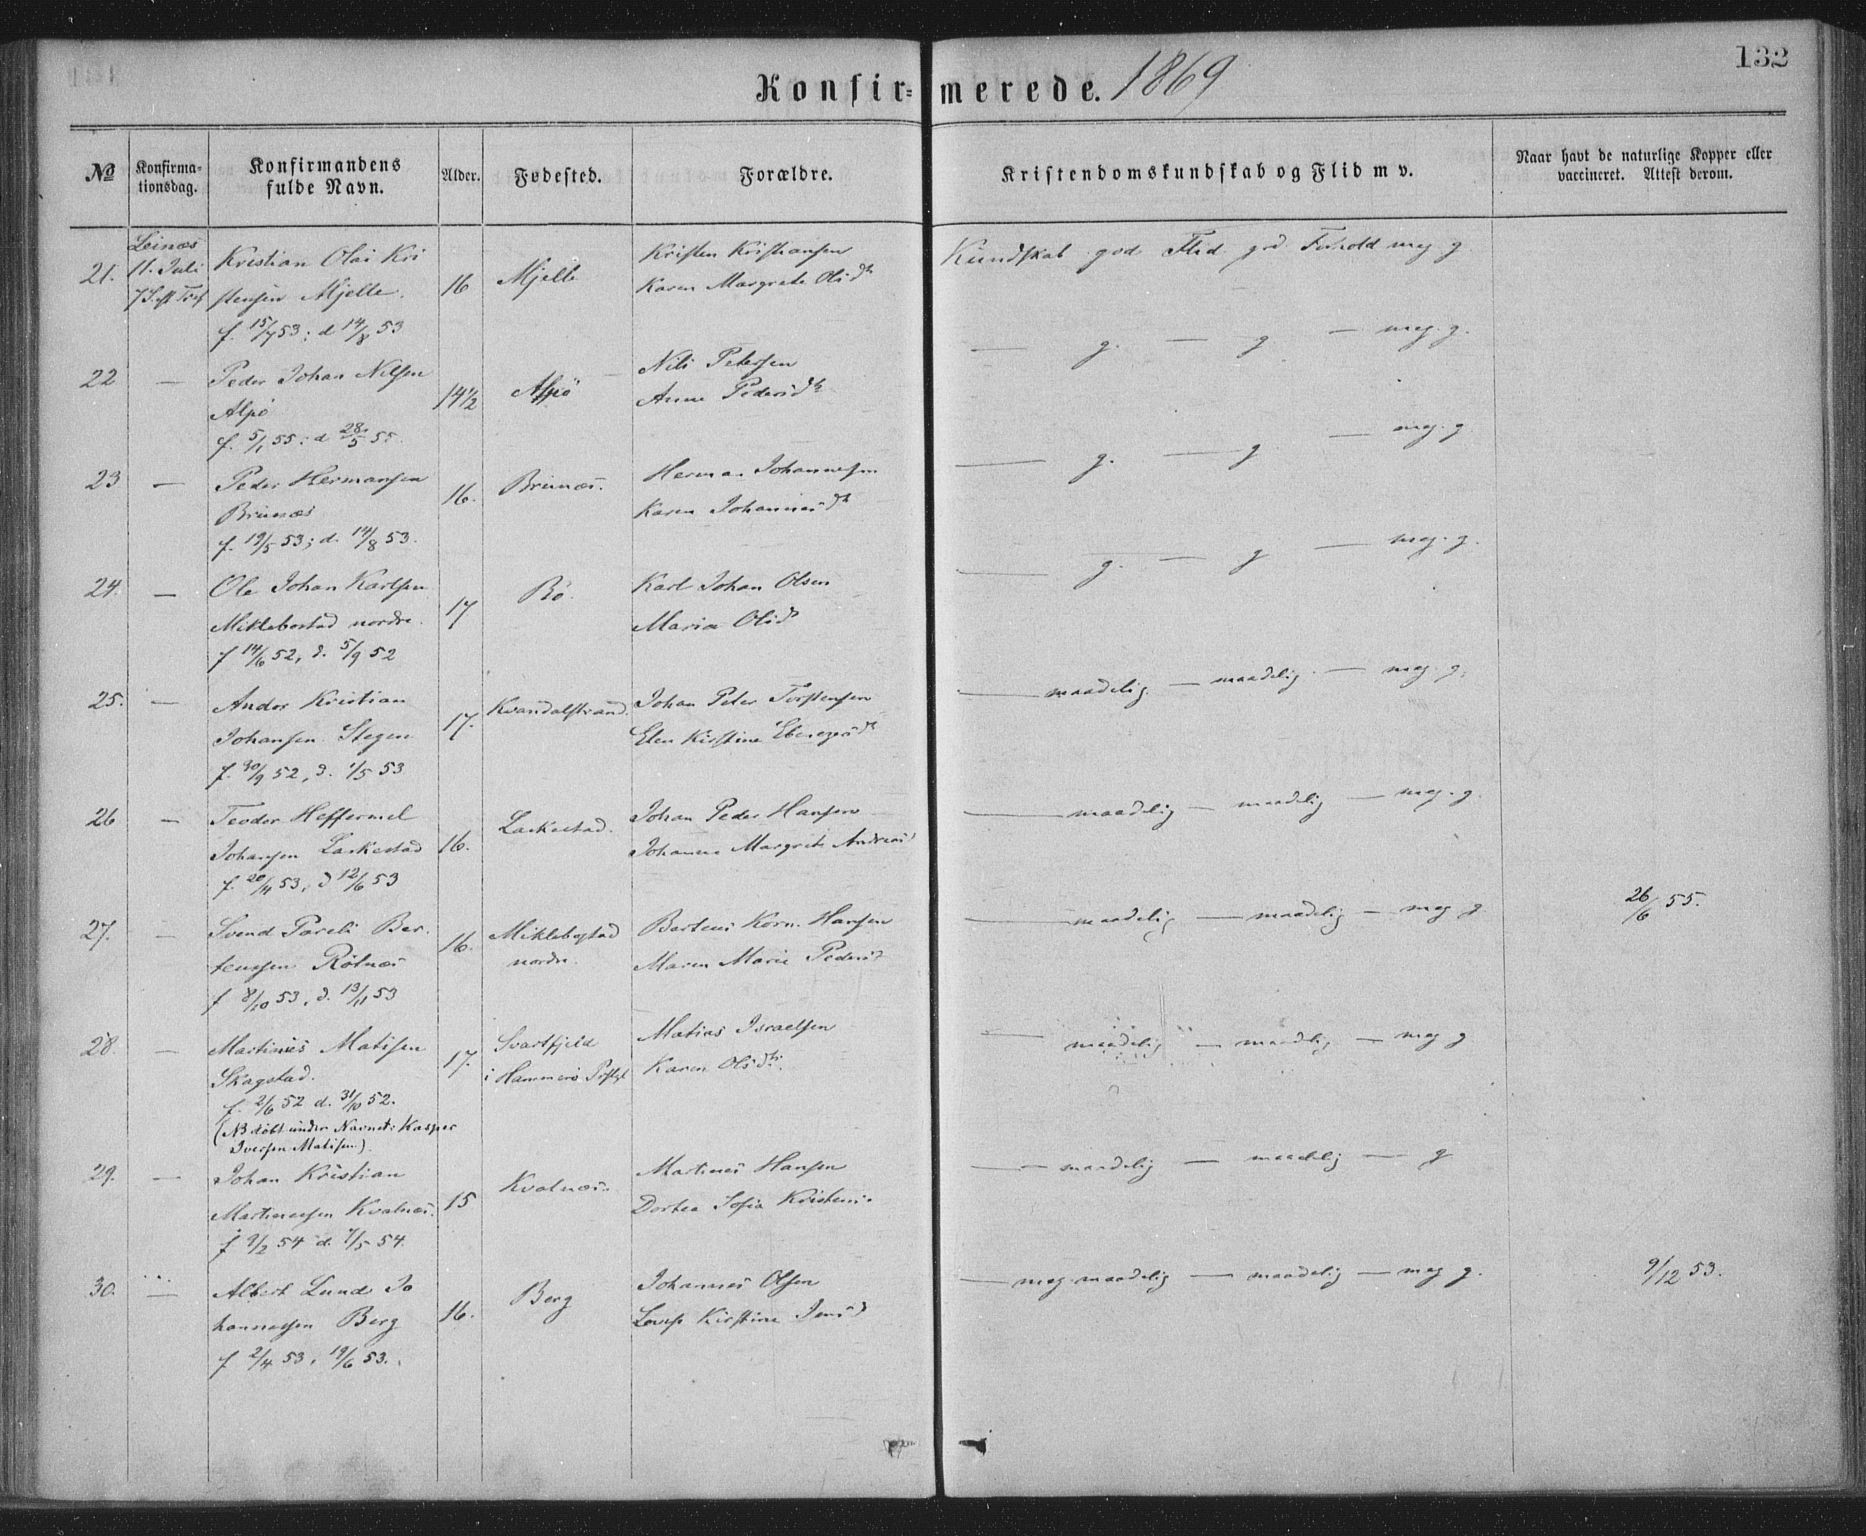 132
Konfirmerede. 1869
No
Konfirma-
tionsdag.
Konfirmandens
fulde Navn.
Alder.
Fødested.
Forældre.
Kristendomskundskab og Flid m v.
Naar havt de naturlige Kopper eller
vaccineret. Attest derom.
21.
Leinæs
11. Juli
7 S. eft. Tref
Kristian Olai Kri
stensen Mjelle.
f. 15/7 53; d 14/8 53
16
Mjelle
Kristen Kristiansen
Karen Margrete Olsdtr
Kundskab god Flid god Forhold meg g.
22 —
Peder Johan Nilsen
Alpø
f. 5/1 55: d 28/5 55.
14 1/2
Alpø
Nils Petersen
Anne Pedersdtr
— g. — g — meg. g.
23 —
Peder Hermansen
Brunæs
f. 19/5 53; d. 14/8 53.
16.
Brunæs.
Herman Johannesen
Karen Johannesdtr
— g. — g — meg. g.
24. —
Ole Johan Karlsen
Miklebostad nordre.
f 14/6 52, d. 5/9 52
17
Bø.
Karl Johan Olsen
Maria Olsd
— g. — g — meg. g.
25. —
Andor Kristian
Johansen Stegen
f. 30/9 52, d. 1/5 53
17.
Kvandalstrand.
Johan Peter Torstensen
Elen Kirstine Ebenezersdtr
— maadelig. — maadelig. — meg. g.
26 —
Teodor Heffermel
Johansen Laskestad
f. 20/4 53, d 12/6 53
16.
Laskestad.
Johan Peder Hansen
Johanna Margrete Andreasd
— maadelig — maadelig — meg. g.
27. —
Svend Pareli Ber-
tensen Rötnæs
f 8/10 53, d. 13/11 53
16.
Miklebostad
nordre.
Berteus Korn. Hansen
Maren Marie Pedersd
— maadelig — maadelig — meg g.
26/6 55.
28. —
Martinus Matisen
Skagstad.
f. 2/6 52 d. 31/10 52.
(NB döbt under Navnet: Kasper
Iversen Matisen).
17.
Svartfjeld
i Hammerø Prstgj
Matias Israelsen
Karen Olsdtr.
— maadelig — maadelig — meg g
29. —
Johan Kristian
Martinussen Kvalnæs.
f 9/2 54 d. 7/5 54.
15
Kvalnæs.
Martinus Hansen
Dortea Sofia Kristens
— maadelig — maadelig — g
30. —
Albert Lund Jo
hannessen Berg
f 2/4 53, 19/6 53.
16.
Berg
Johannes Olsen
Lovise Kirstine Jensd
— meg maadelig — maadelig — meg g.
9/12 53.